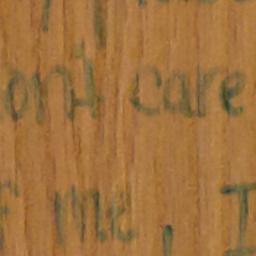 on't care
me, I